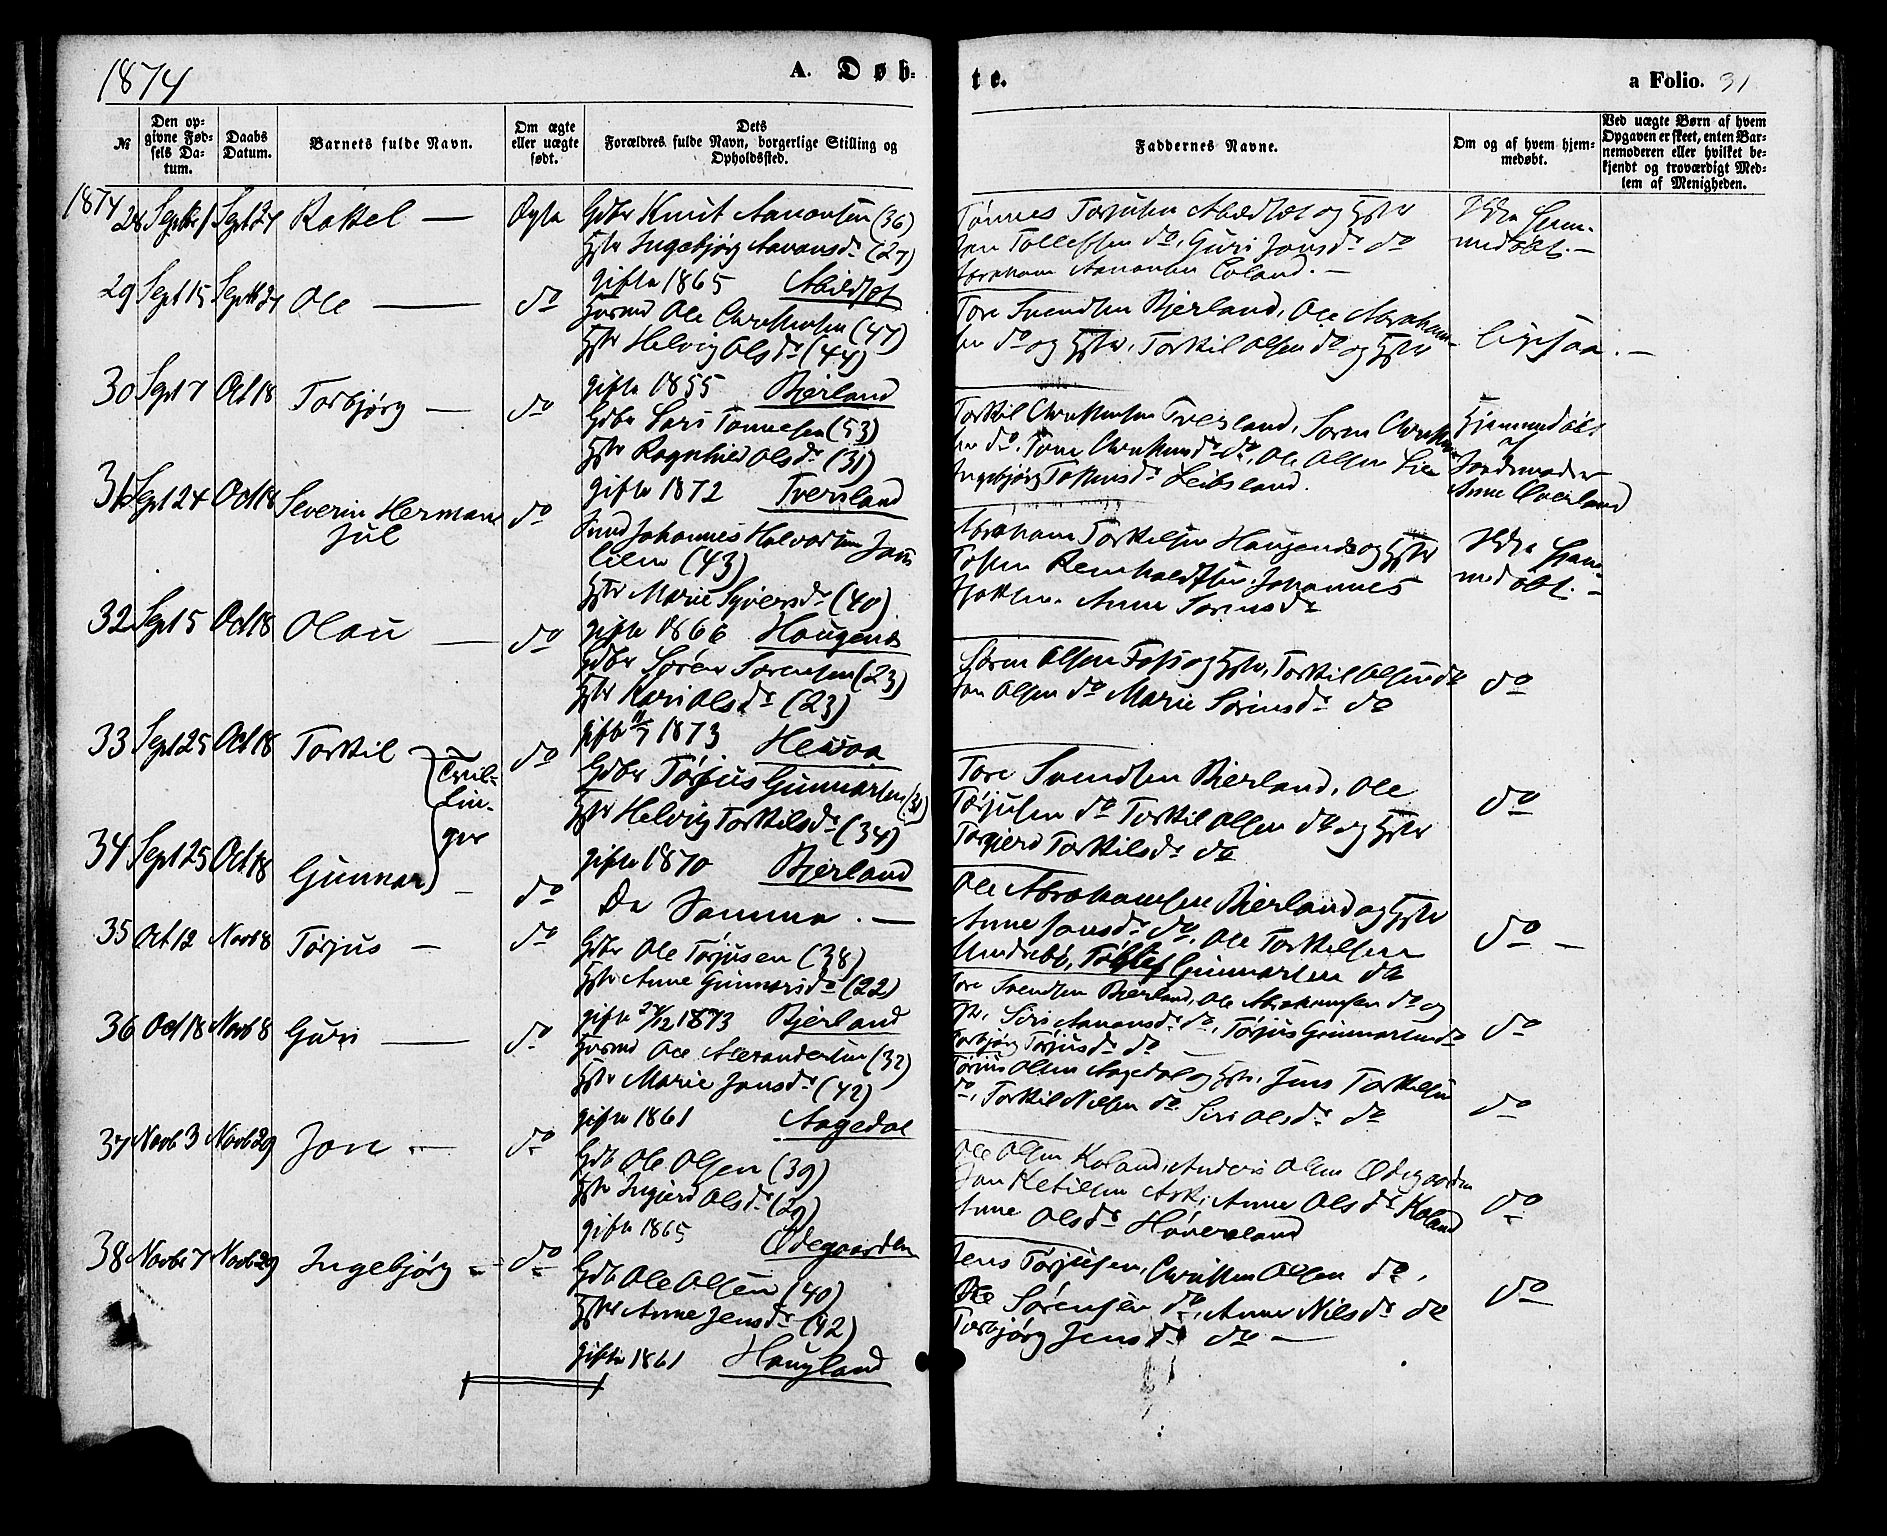 1874
A. Døb-
te.
a Folio. 31
№
Den op-
givne Fød-
sels Da-
tum.
Daabs
Datum.
Barnets fulde Navn.
Om ægte
eller uægte
født.
Dets
Forældres fulde Navn, borgerlige Stilling og
Opholdssted.
Faddernes Navne.
Om og af hvem hjem-
medøbt.
Ved uægte Børn af hvem
Opgaven er skeet, enten Bar-
nemoderen eller hvilket be-
kjendt og troværdigt Med-
lem af Menigheden.
1874
28 Sept 24 Rakkel — Ægte Gdbr Knut Aanonsen (36)
Hstr Ingebjørg Aanonsdr (27)
gifte 1865 Abildset
Tønnes Torjusen Abildset og Hstr
Jon Tollefsen do, Guri Jonsdr do
Abraham Aanonsen
Ikke Hjem-
medøbt. —
29 Sept 15 Sept 24 Ole — do Husmd Ole Christensen (47)
Hstr Helvig Olsdr (44)
gifte 1855 Bjerland
Tore Svendsen Bjerland, Ole Abraham-
sen do og Hstr, Torkil Olsen do og Hstr
ligesaa. —
30 Sept 7 Oct 18 Torbjørg — do Gdbr Lars Tønnesen (53)
Hstr Ragnhild Olsdr (31)
gifte 1872 Tversland
Torkil Christensen Tversland, Soren Christen-
sen do, Tone Christensdr do, Ole Olsen Lien
Ingebjørg
Hjemmedøbt
af
Jordemoder
Anne Overland
31 Sept 24 Oct 18 Severin Herman
Jul do Johannes Halvorsen
(43)
Hstr Marie Syversdr (40)
gifte 1866 Haugenes
Abraham Torkelsen Haugenes og Hstr
Johannes
Anne Sørensdr
Ikke Hjem-
medøbt. —
32 Sept 5 Oct 18 Olau — do Gdbr Søren Sørensen (23)
Hstr Kari Olsdr (23)
gifte 1873
Søren Olsen Foss og Hstr, Torkil Olsen do
Jon Olsen do Marie Sørensdr do
do
33 Sept 25 Oct 18 Torkil Tvil-
lin-
ger do Gdbr Tørjus Gunnarsen (31)
Hstr Helvig Torkilsdr (34)
gifte 1870 Bjerland
Tore Svendsen Bjerland, Ole
Tørjusen do Torkil Olsen do og Hstr
Torgjerd Torkilsdr do
do
34 Sept 25 Oct 18 Gunnar — do De Samme. —
Ole Abrahamsen Bjerland og Hstr
Anne Jonsdr do, Ole Torkelsen
Undrebø, Gunnarsen do
do —
35 Oct 12 Novb 8 Tørjus — do Gdbr Ole Tørjusen (38)
Hstr Anne Gunnarsdr (22)
gifte 27/12 1873 Bjerland
Tore Svendsen Bjerland, Ole Abrahamsen do og
Hstr, Siri Aanonsdr do, Tørjus Gunnarsen do
Torbjørg Tørjusdr do
do
36 Oct 18 Novb 8 Guri — do Husmd Ole Alexandersen (32)
Hstr Marie Jonsdr (42)
gifte 1861 Aagedal
Tørjus Olsen Aagedal og Hstr, Jens Torkelsen
do, Torkil Nilsen do Siri Olsdr do
do
37 Novb 3 Novb 29 Jon — do Gdb Ole Olsen (39)
Hstr Ingjerd Olsdr (29)
gifte 1865 Ødegaarden
Ole Olsen Koland, Anders Olsen Ødegaarden
Jon Ketilsen Ask, Anne Olsdr Koland
Anne Olsdr Høversland
do
38 Novbr 7 Novb 29 Ingebjørg — do Gdb Ole Olsen (40)
Hstr Anne Jensdr (42)
gifte 1861 Haugland
Jens Tørjusen, Christen Olsen do,
Ole Sørensen do, Anne Nilsdr do
Torbjørg Jensdr do —
do